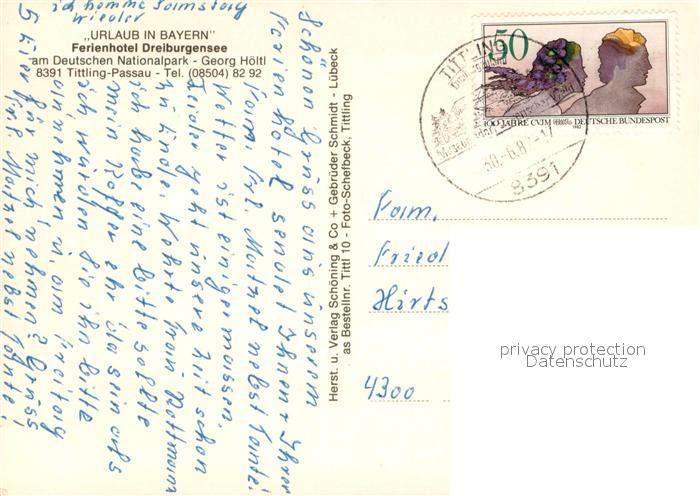 "URLAUB IN BAYERN"
Ferienhotel Dreiburgensee
am Deutschen Nationalpark - Georg Höltl
8391 Tittling-Passau - Tel. (08504) 82 92
Schönen Grüss aus unserem
Ferienhotel sendet Ihnen + Ihrer
Fam. Frl. Matzel nebst Tante;
Wetter ist einigermaßen,
Leider geht unsere Zeit schon
zu Ende. Werte Frau
ich habe eine Bitte sollte
mein ehr da sein
ich würden Sie ihn bitte
annehmen, am Freitag
für mich nehmen? Grüss
Frl. Matzel nebst Tante;
5 Eier
ich komme Samstag
wieder
Herst. u. Verlag Schöning & Co + Gebrüder Schmidt - Lübeck
as Bestellnr. Tittl 10 - Foto-Schefbeck, Tittling
50
100 JAHRE CVJM DEUTSCHE BUNDESPOST
TITTLING
30.-6.8 -17
8391
Fam.
Fried
Hirts
4300
privacy protection
Datenschutz